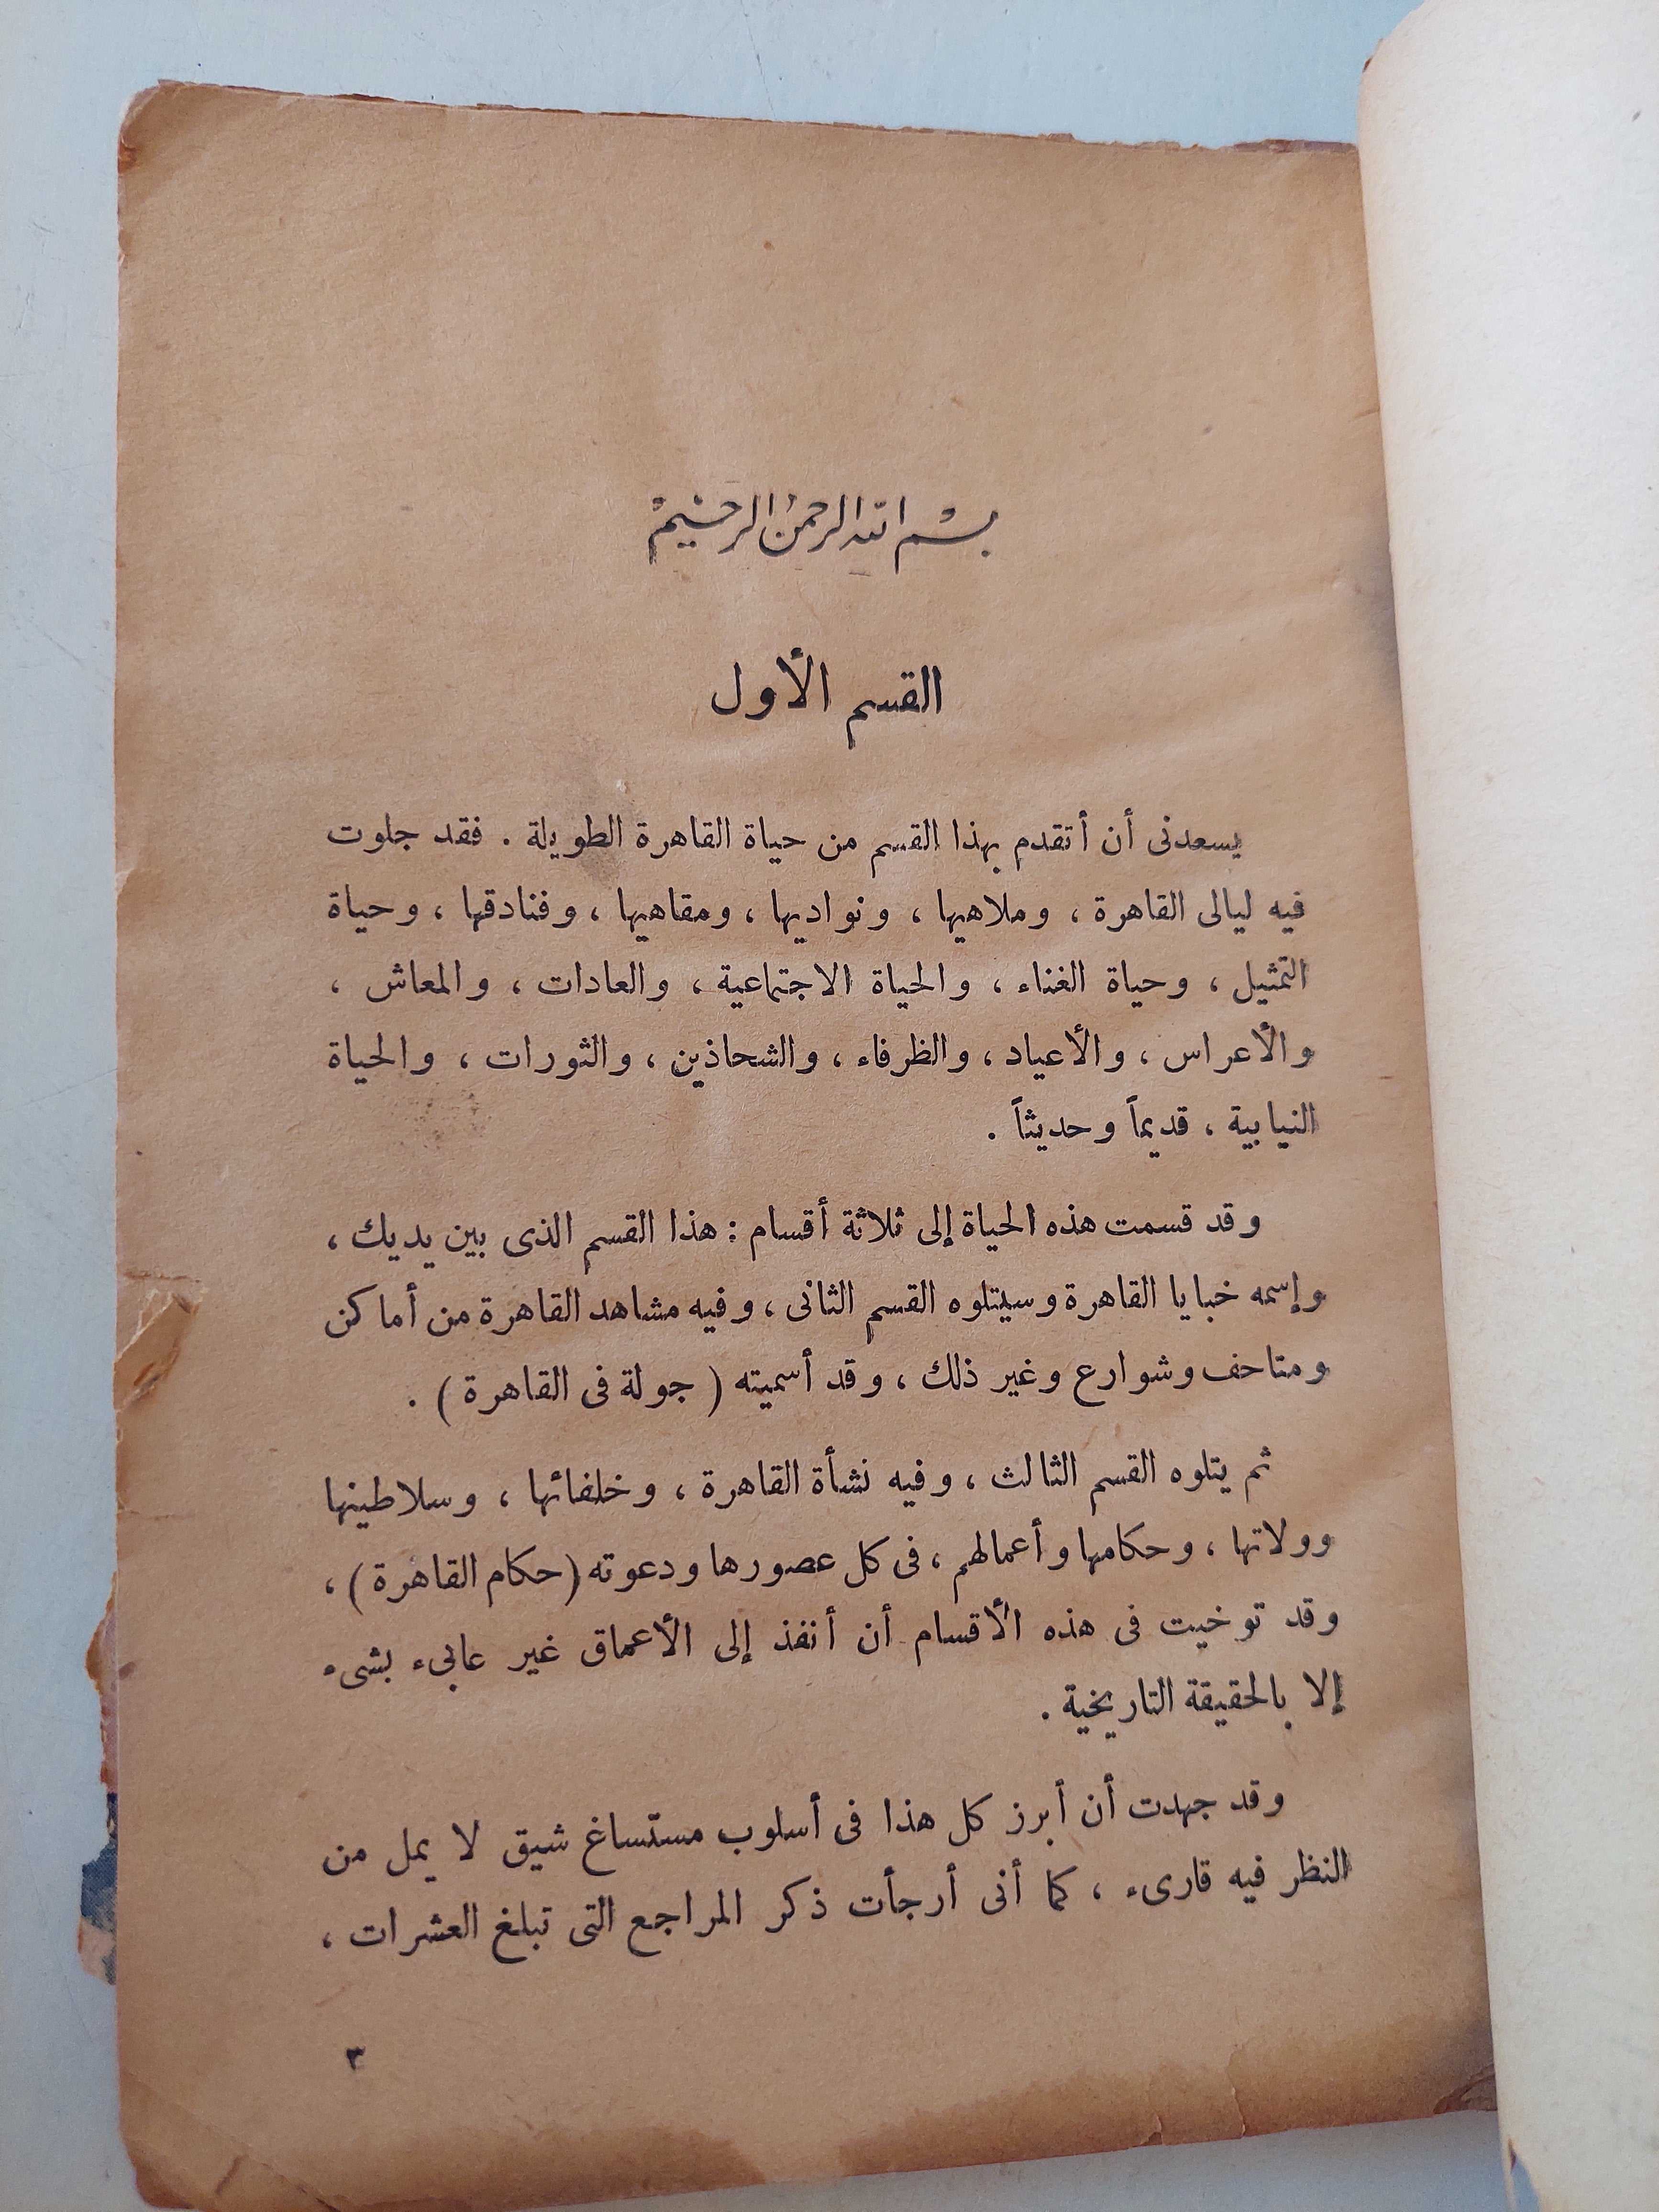 بسم الله الرحمن الرحيم
القسم الأول
يسعدنى أن أتقدم بهذا القسم من حياة القاهرة الطويلة . فقد جلوت
فيه ليالى القاهرة ، وملاهيها ، ونواديها ، ومقاهيها ، وفنادقها ، وحياة
التمثيل ، وحياة الغناء ، والحياة الاجتماعية ، والعادات ، والمعاش ،
والأعراس ، والأعياد ، والظرفاء ، والشحاذين ، والثورات ، والحياة
النيابية ، قديماً وحديثاً .
وقد قسمت هذه الحياة إلى ثلاثة أقسام : هذا القسم الذى بين يديك ،
وإسمه خبايا القاهرة وسيتلوه القسم الثانى ، وفيه مشاهد القاهرة من أماكن
ومتاحف وشوارع وغير ذلك ، وقد أسميته ( جولة فى القاهرة ) .
ثم يتلوه القسم الثالث ، وفيه نشأة القاهرة ، وخلفائها ، وسلاطينها
وولاتها ، وحكامها وأعمالهم ، فى كل عصورها ودعوته (حكام القاهرة ) ،
وقد توخيت فى هذه الأقسام أن أنفذ إلى الأعماق غير عابىء بشىء
إلا بالحقيقة التاريخية .
وقد جهدت أن أبرز كل هذا فى أسلوب مستساغ شيق لا يمل من
النظر فيه قارىء ، كما أنى أرجأت ذكر المراجع التى تبلغ العشرات ،
٣